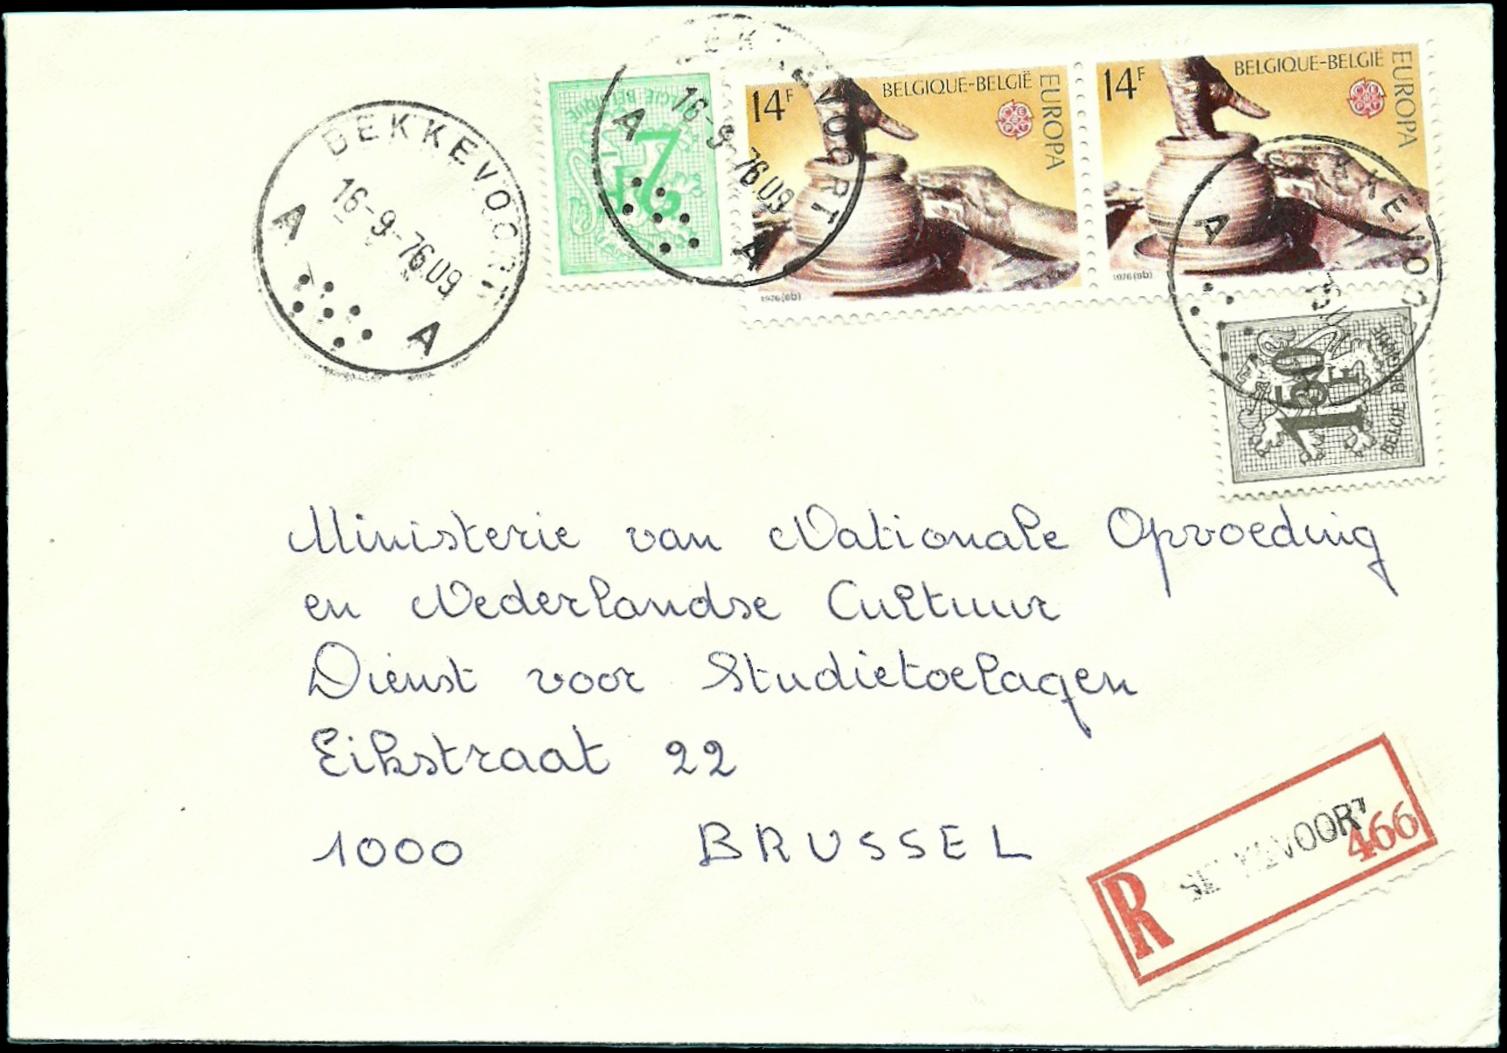 BEKKEVOORT
16-9-76.09
A A
BELGIE BELGIQUE
2F
BEKKEVOORT
16-9-76.09
A A
14F BELGIQUE-BELGIË EUROPA
1976(9b)
14F BELGIQUE-BELGIË EUROPA
1976(9b)
A
1F50
BELGIE BELGIQUE
Ministerie van Nationale Opvoeding
en Nederlandse Cultuur
Dienst voor Studietoelagen
Eikstraat 22
1000 BRUSSEL
R
466